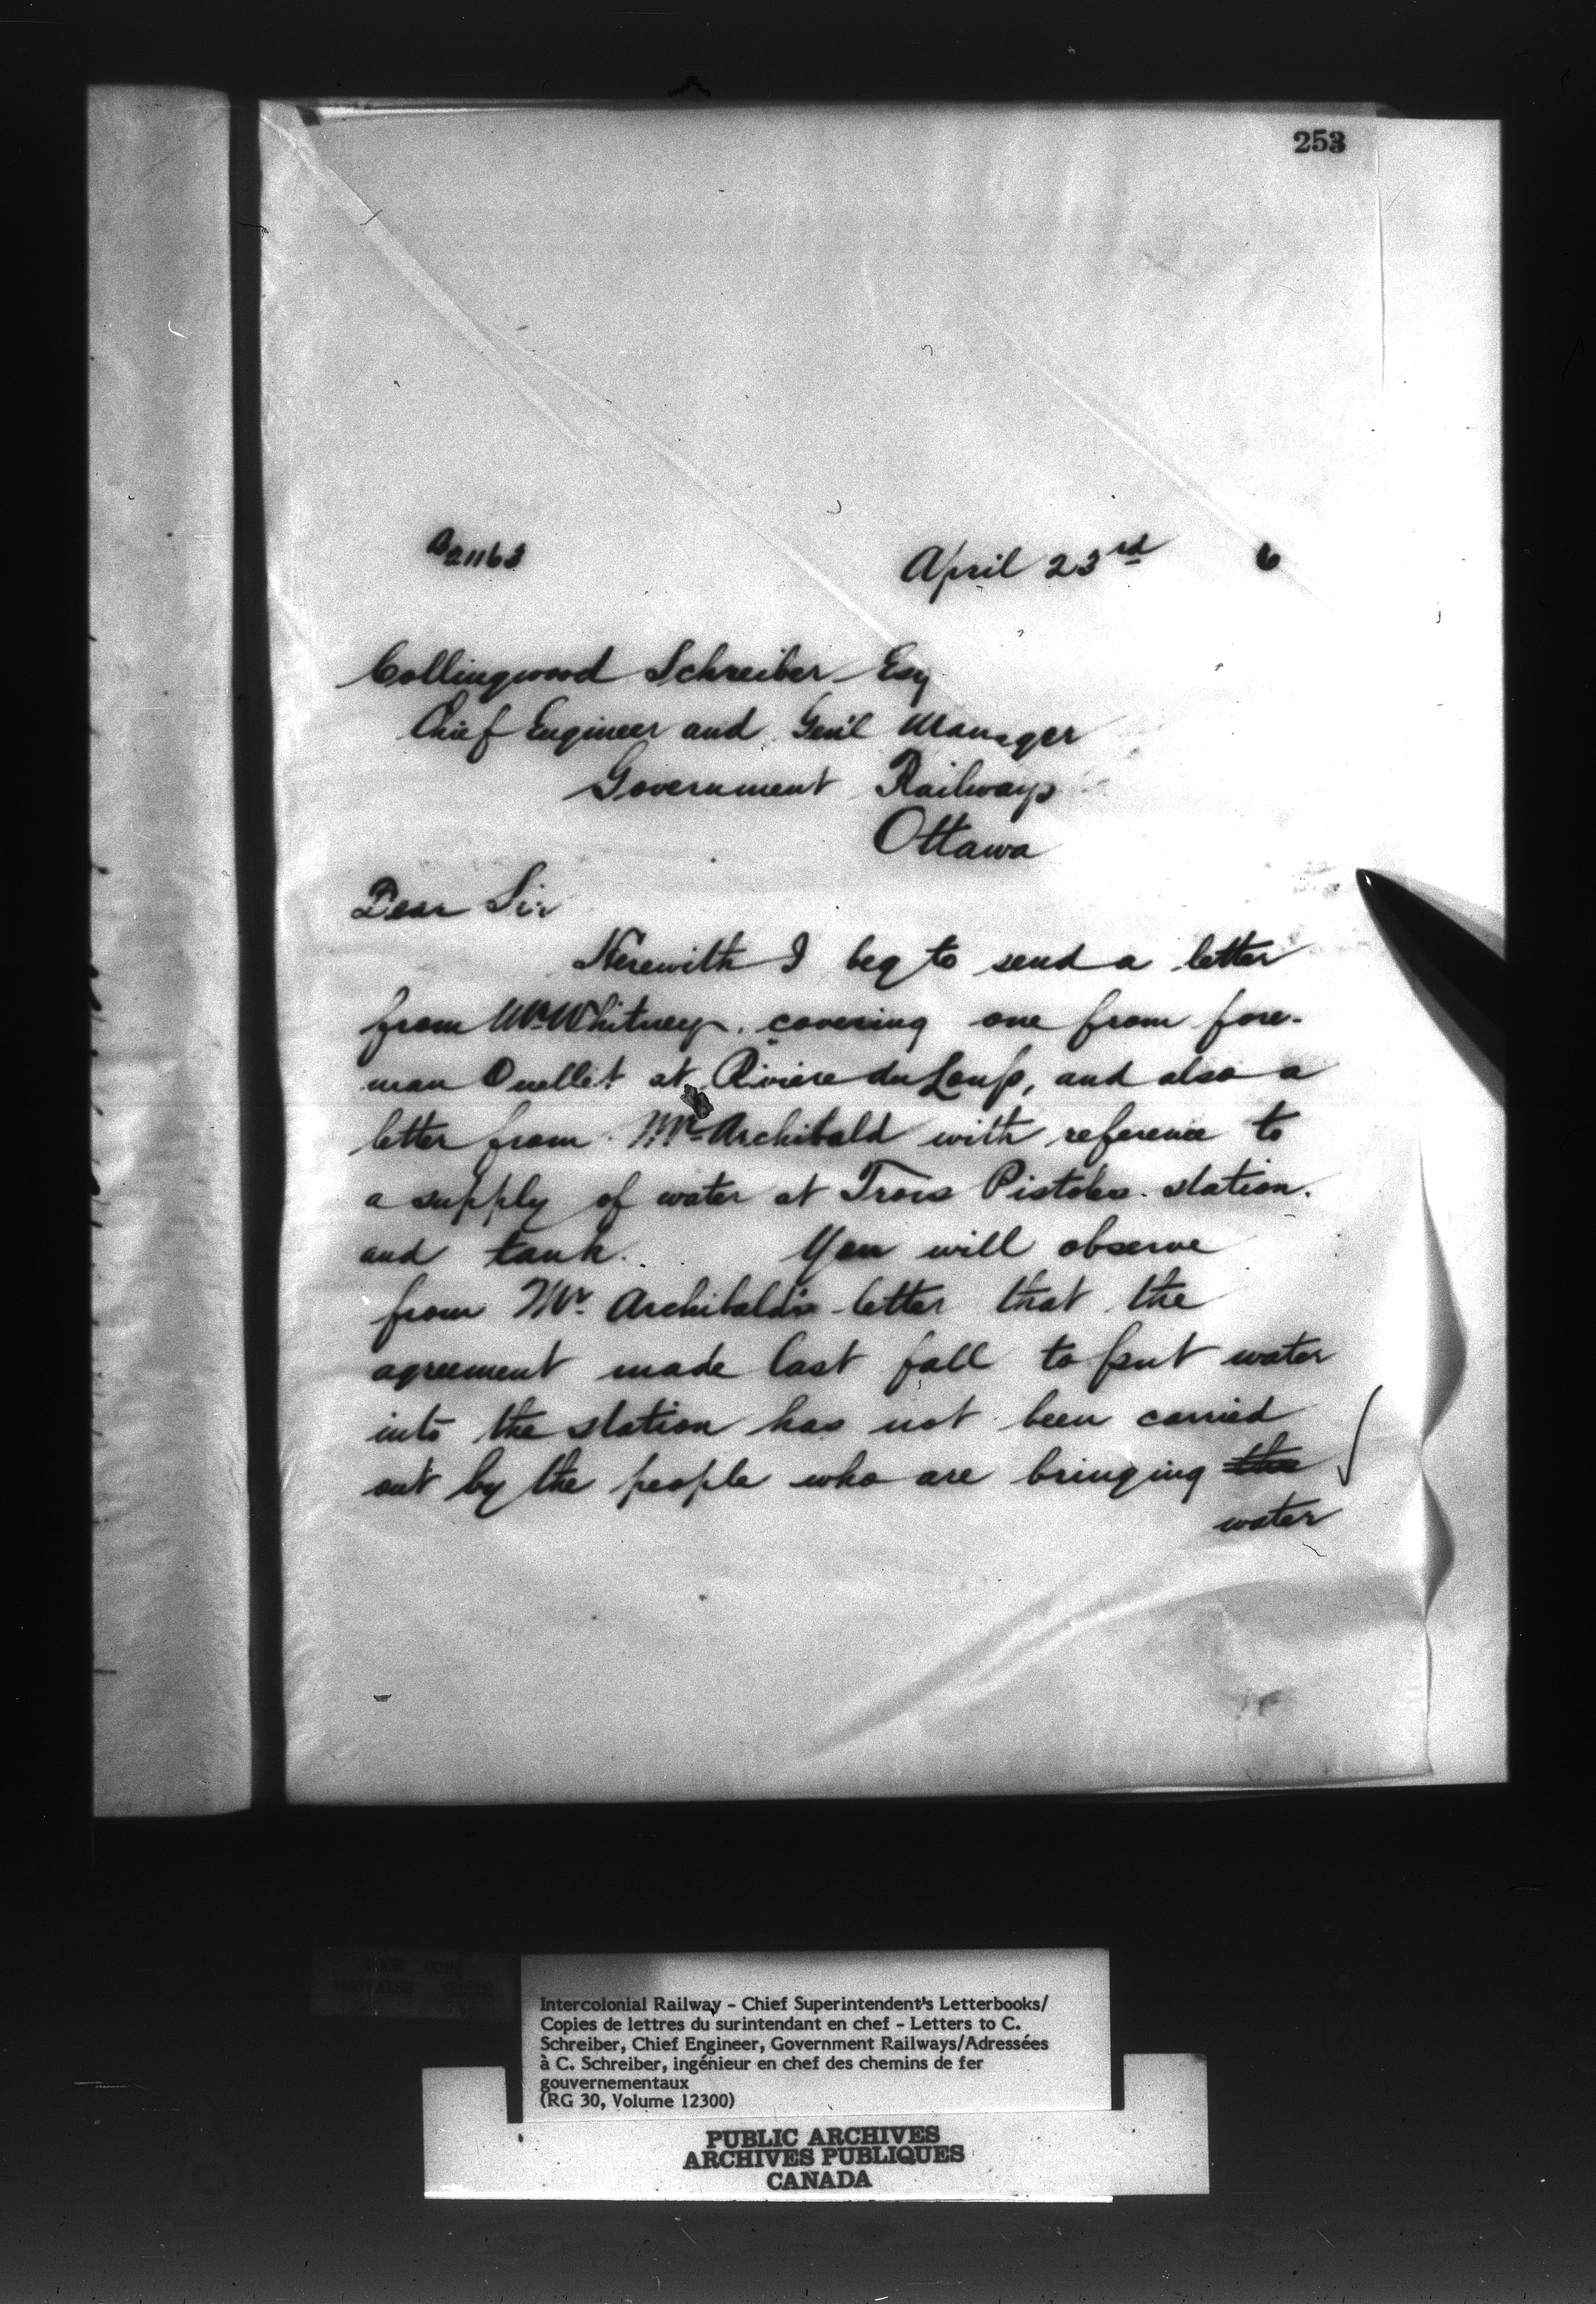 253
B21163 April 23rd 6
Collingwood Schreiber Esq
Chief Engineer and Gen'l Manager
Government Railways
Ottawa
Dear Sir
Herewith I beg to send a letter
from Mr Whitney, covering one from fore-
man Ouellet at Riviere du Loup, and also a
letter from Mr Archibald with reference to
a supply of water at Trois Pistoles station.
and tank. You will observe
from Mr. Archibald's letter that the
agreement made last fall to put water
into the station has not been carried
out by the people who are bringing the
water
Intercolonial Railway - Chief Superintendent's Letterbooks/
Copies de lettres du surintendant en chef - Letters to C.
Schreiber, Chief Engineer, Government Railways/Adressées
à C. Schreiber, ingénieur en chef des chemins de fer
gouvernementaux
(RG 30, Volume 12300)
PUBLIC ARCHIVES
ARCHIVES PUBLIQUES
CANADA